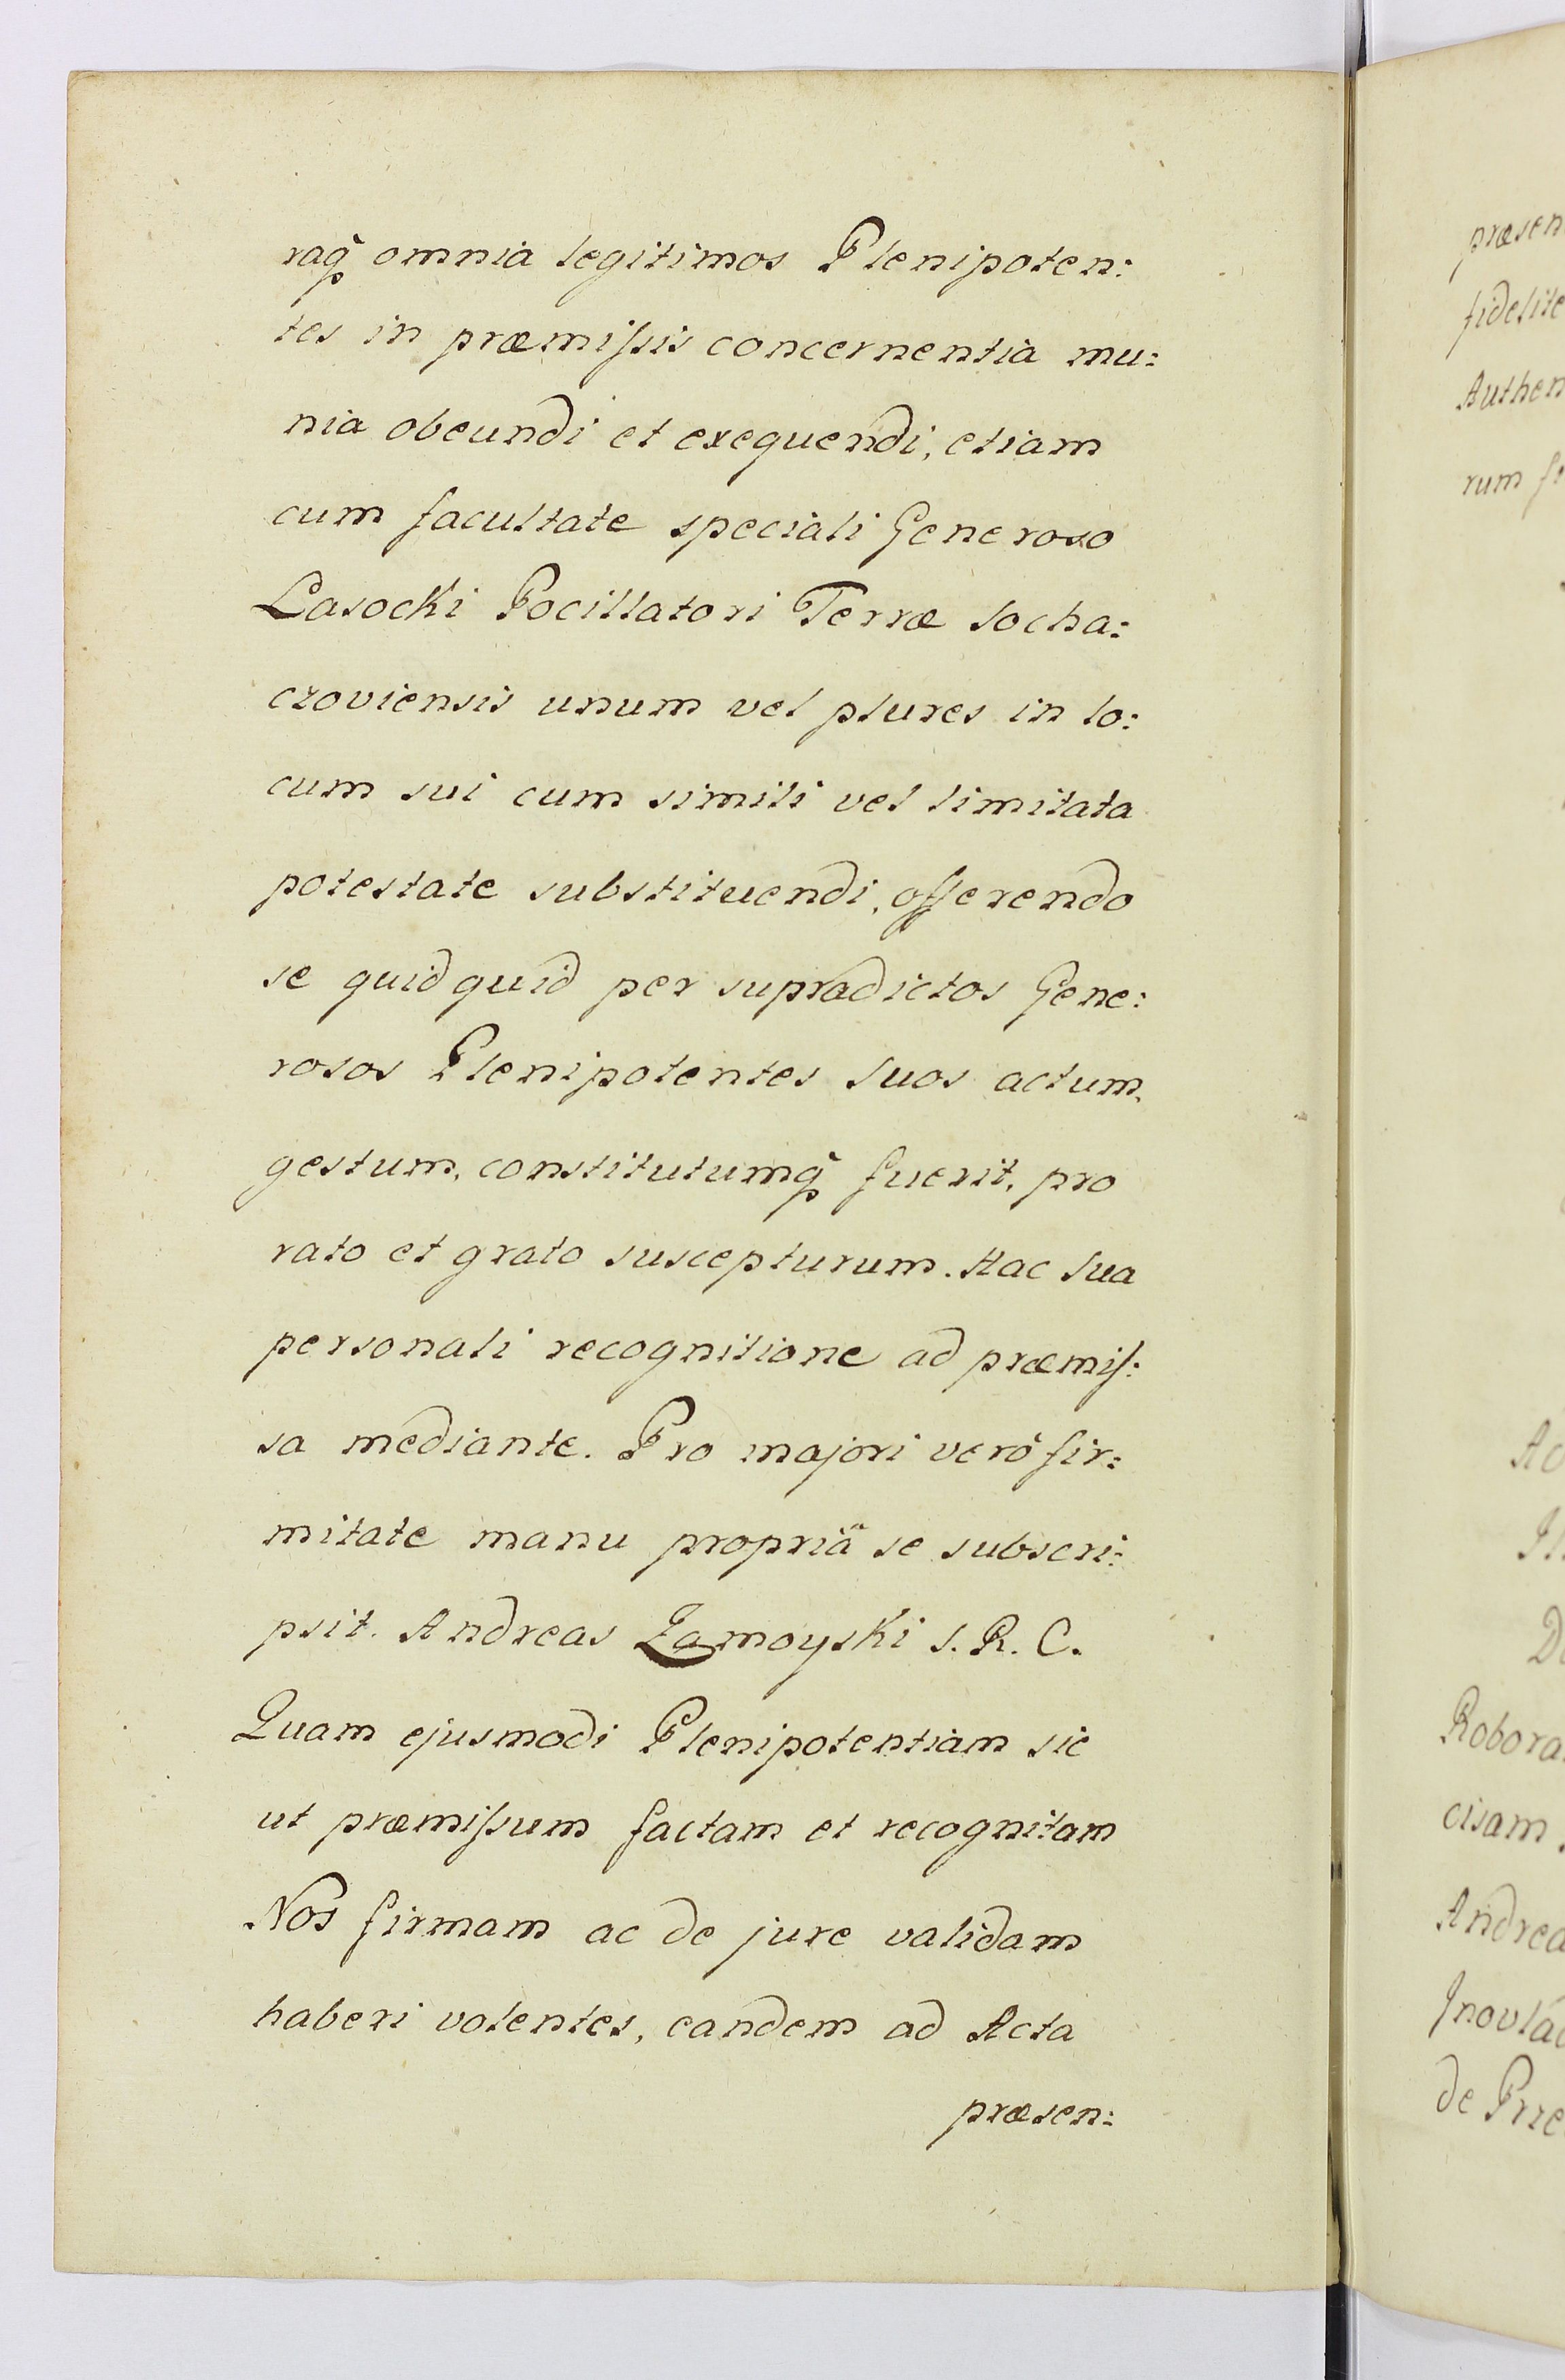 raq̃ omnia legitimos Plenipoten:
tes in præmiſsis concernentia mu:
nia obeundi et exequendi, etiam
cum facultate speciali Generoso
Lasocki Pocillatori Terræ Socha:
czoviensis unum vel plures in lo:
cum sui cum simili vel limitata
potestate substituendi, offerendo
se quidquid per supradictos Gene:
rosos Plenipotentes suos actum,
gestum, constitutumq̃ fuerit, pro
rato et grato suscepturum. Hac sua
personali recognitione ad præmiſ:
sa mediante. Pro majori verò fir:
mitate manu propriâ se subscri:
psit. Andreas Zamoyski S. R. C.
Quam ejusmodi Plenipotentiam sic
ut præmiſsum factam et recognitam
Nos firmam ac de jure validam
haberi volentes, eandem ad Acta
præsen:
præsen
fidelite
Authen
rum
Robora
cisam
Andrea
de Prze